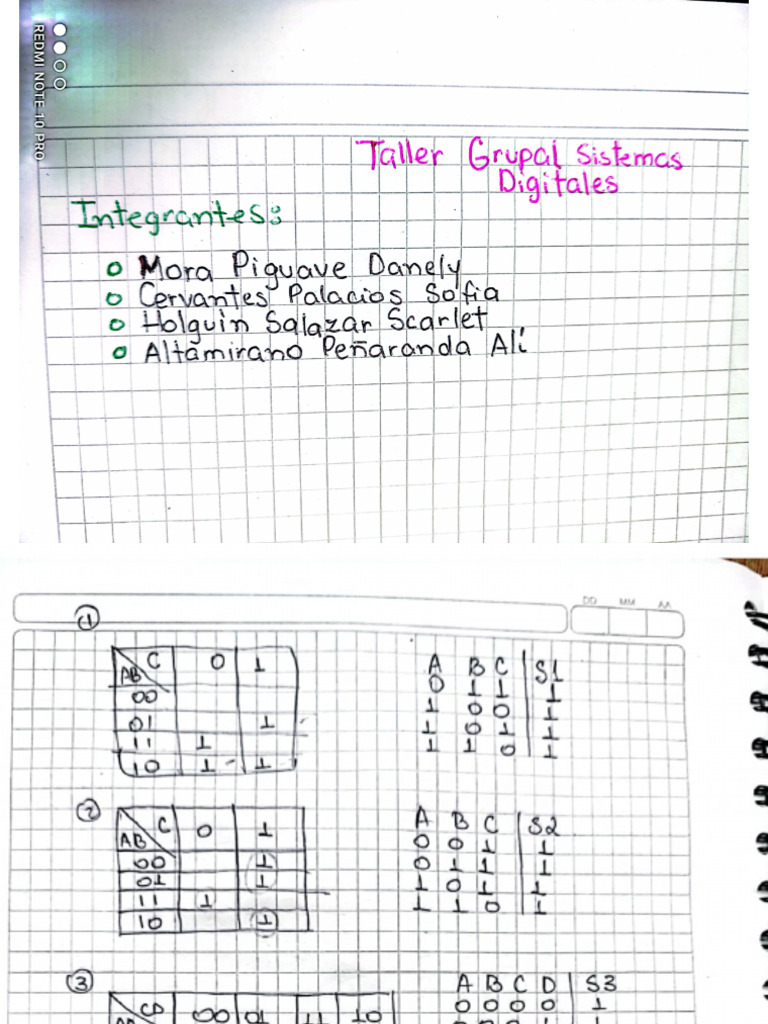 REDMI NOTE 10 PRO
Taller Grupal Sistemas
Digitales
Integrantes:
Mora Piguave Danely
Cervantes Palacios Sofia
Holguin Salazar Scarlet
Altamirano Peñaranda Alí
DD MM AA
1
AB C 0 1
00
01 1
11 1
10 1 1
A B C S1
0 1 1 1
1 0 0 1
1 0 1 1
1 1 0 1
2
AB C 0 1
00 1
01 1
11 1
10 1
A B C S2
0 0 1 1
0 1 1 1
1 0 1 1
1 1 0 1
3
CD 00 01 11 10
A B C D S3
0 0 0 0 1